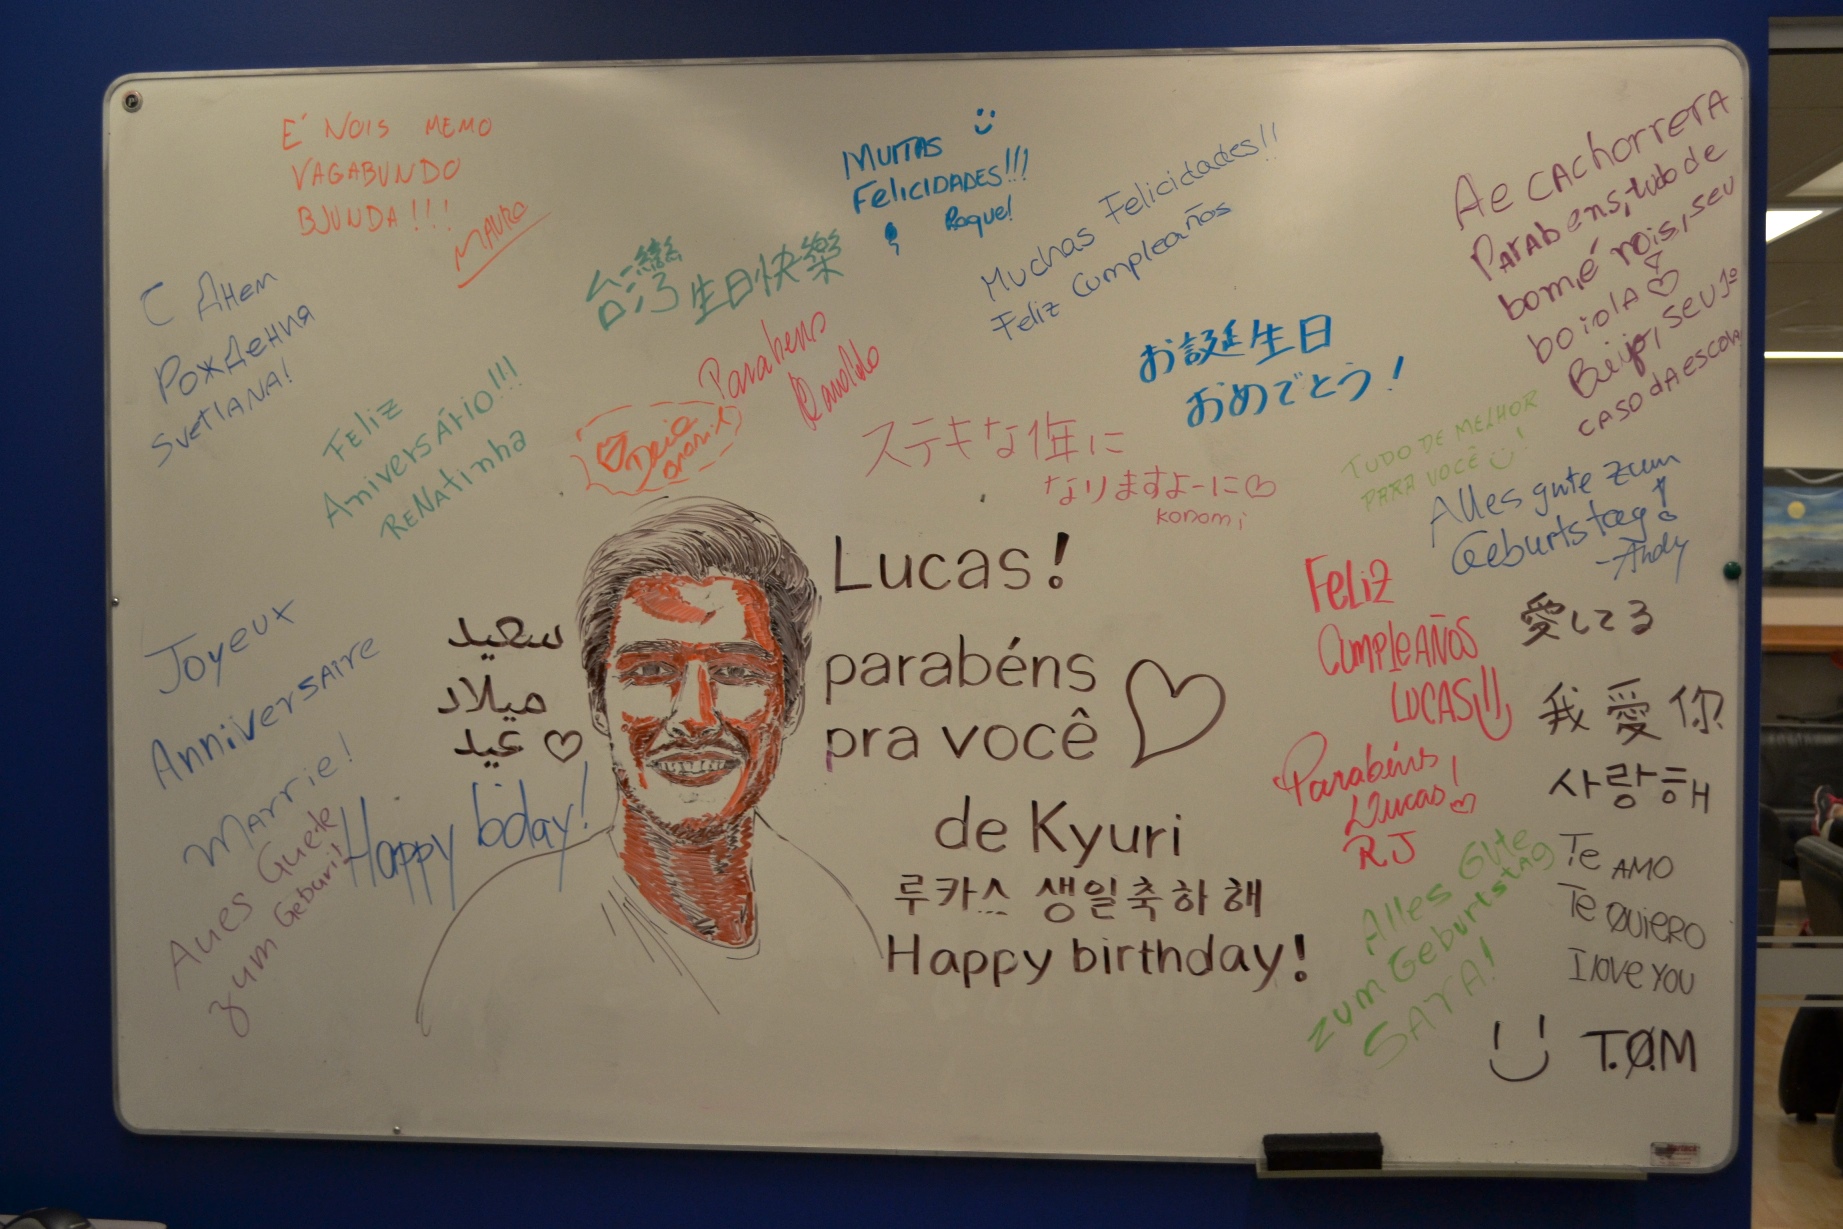 E' NOIS MEMO
VAGABUNDO
BJUNDA!!!
MAURO
С Днем
Рождения
SvetlANA!
Feliz
Aniversário!!!
ReNatinha
台灣 生日快樂
Parabens
MUITAS
FELICIDADES!!!
Raquel
Muchas Felicidades!!
Feliz Cumpleaños
Ae CAchorrerA
PArAbens, tudo de
bom, é nois, seu
boiolA ♡
Beijo, seu 1º
CASO dA escolA
お誕生日
おめでとう!
ステキな1年に
なりますよーに♡
Konomi
TUDO DE MELHOR
PARA VOCÊ !
Alles gute zum
Geburtstag!
-Andy
Joyeux
Anniversaire
Marrie!
سعيد
ميلاد
عيد ♡
Happy bday!
Aues Guete
zum Geburi!
Lucas!
parabéns
pra você ♡
de Kyuri
루카스 생일축하해
Happy birthday!
FELIZ
CUMPLEAÑOS
LUCAS!!
Parabéns
Lucas! ♡
RJ
Alles Gute
zum Geburtstag
SARA!
愛してる
我愛你
사랑해
Te AMO
Te QUIERO
I love YOU
T.Ø.M